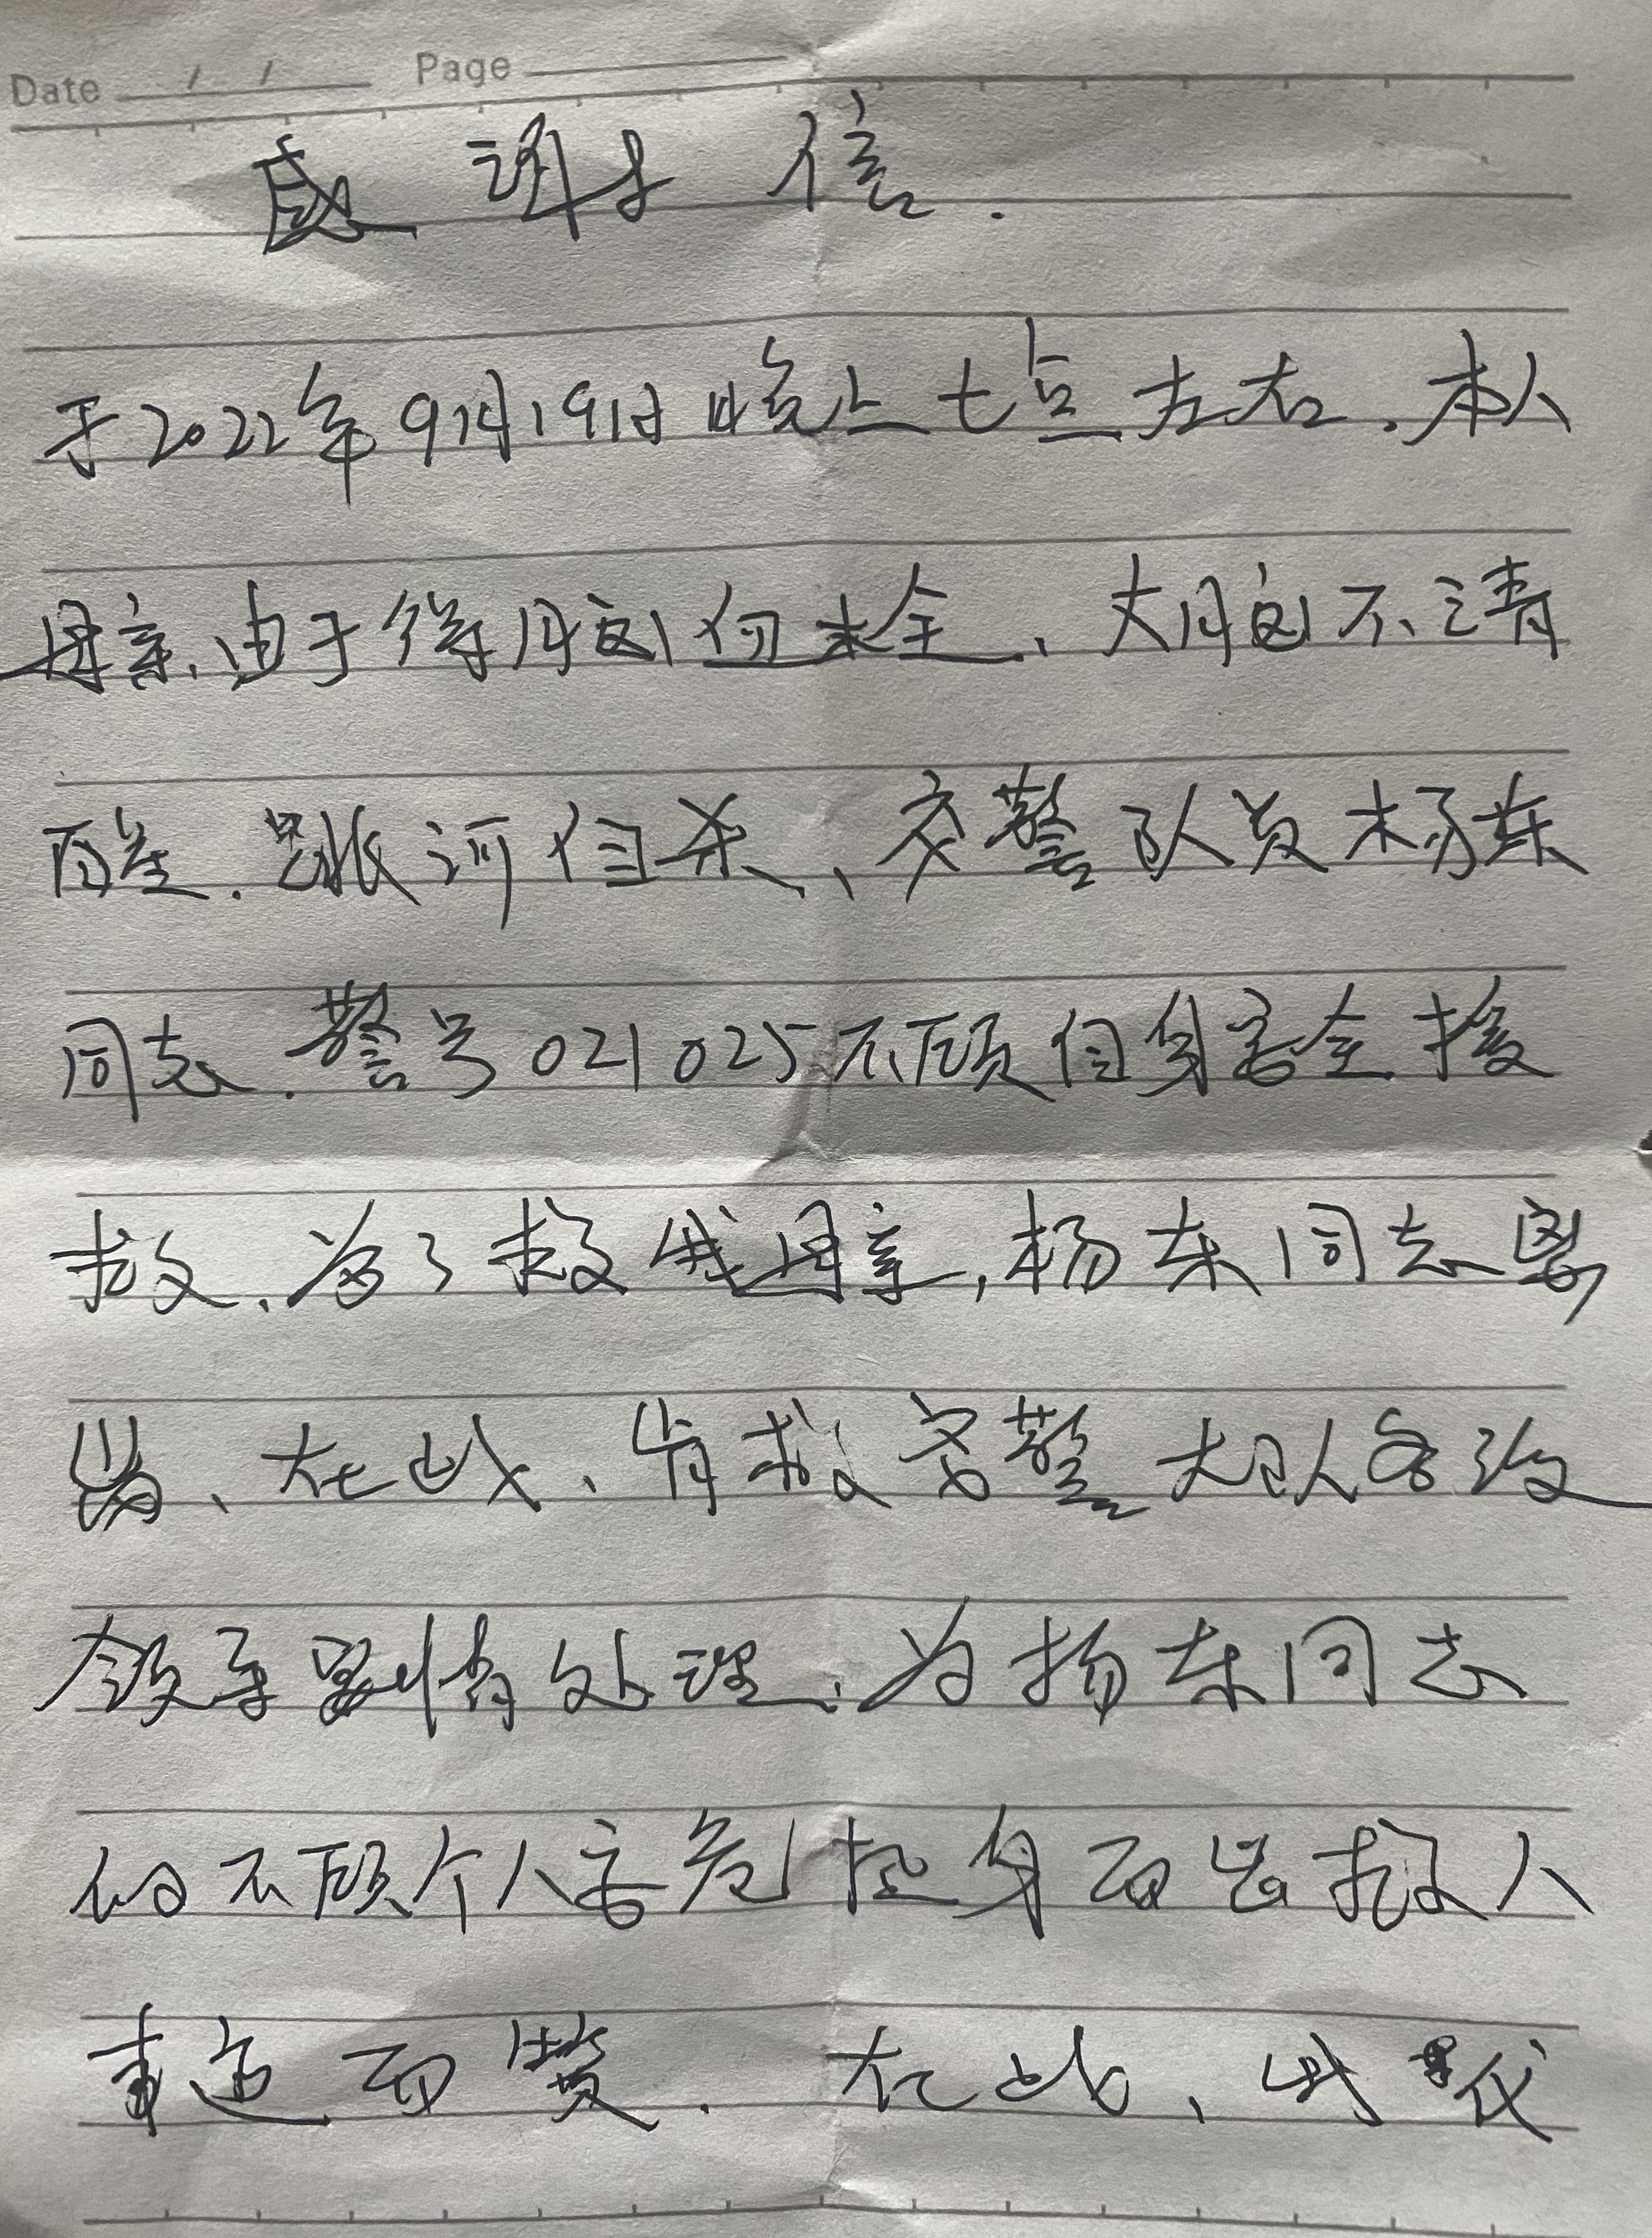 Date / / Page
感谢信.
于2022年9月19日晚上七点左右.本人
母亲、由于得脑血栓、大脑不清
醒.跳河自杀、交警队员杨东
同志.警号021025不顾自身安全接
救、为了救我母亲,杨东同志
在此、肯求交警大队各级
领导酌情处理、为扬东同志
的不顾个人安危挺身而出救人
事迹而赞.在此、我代